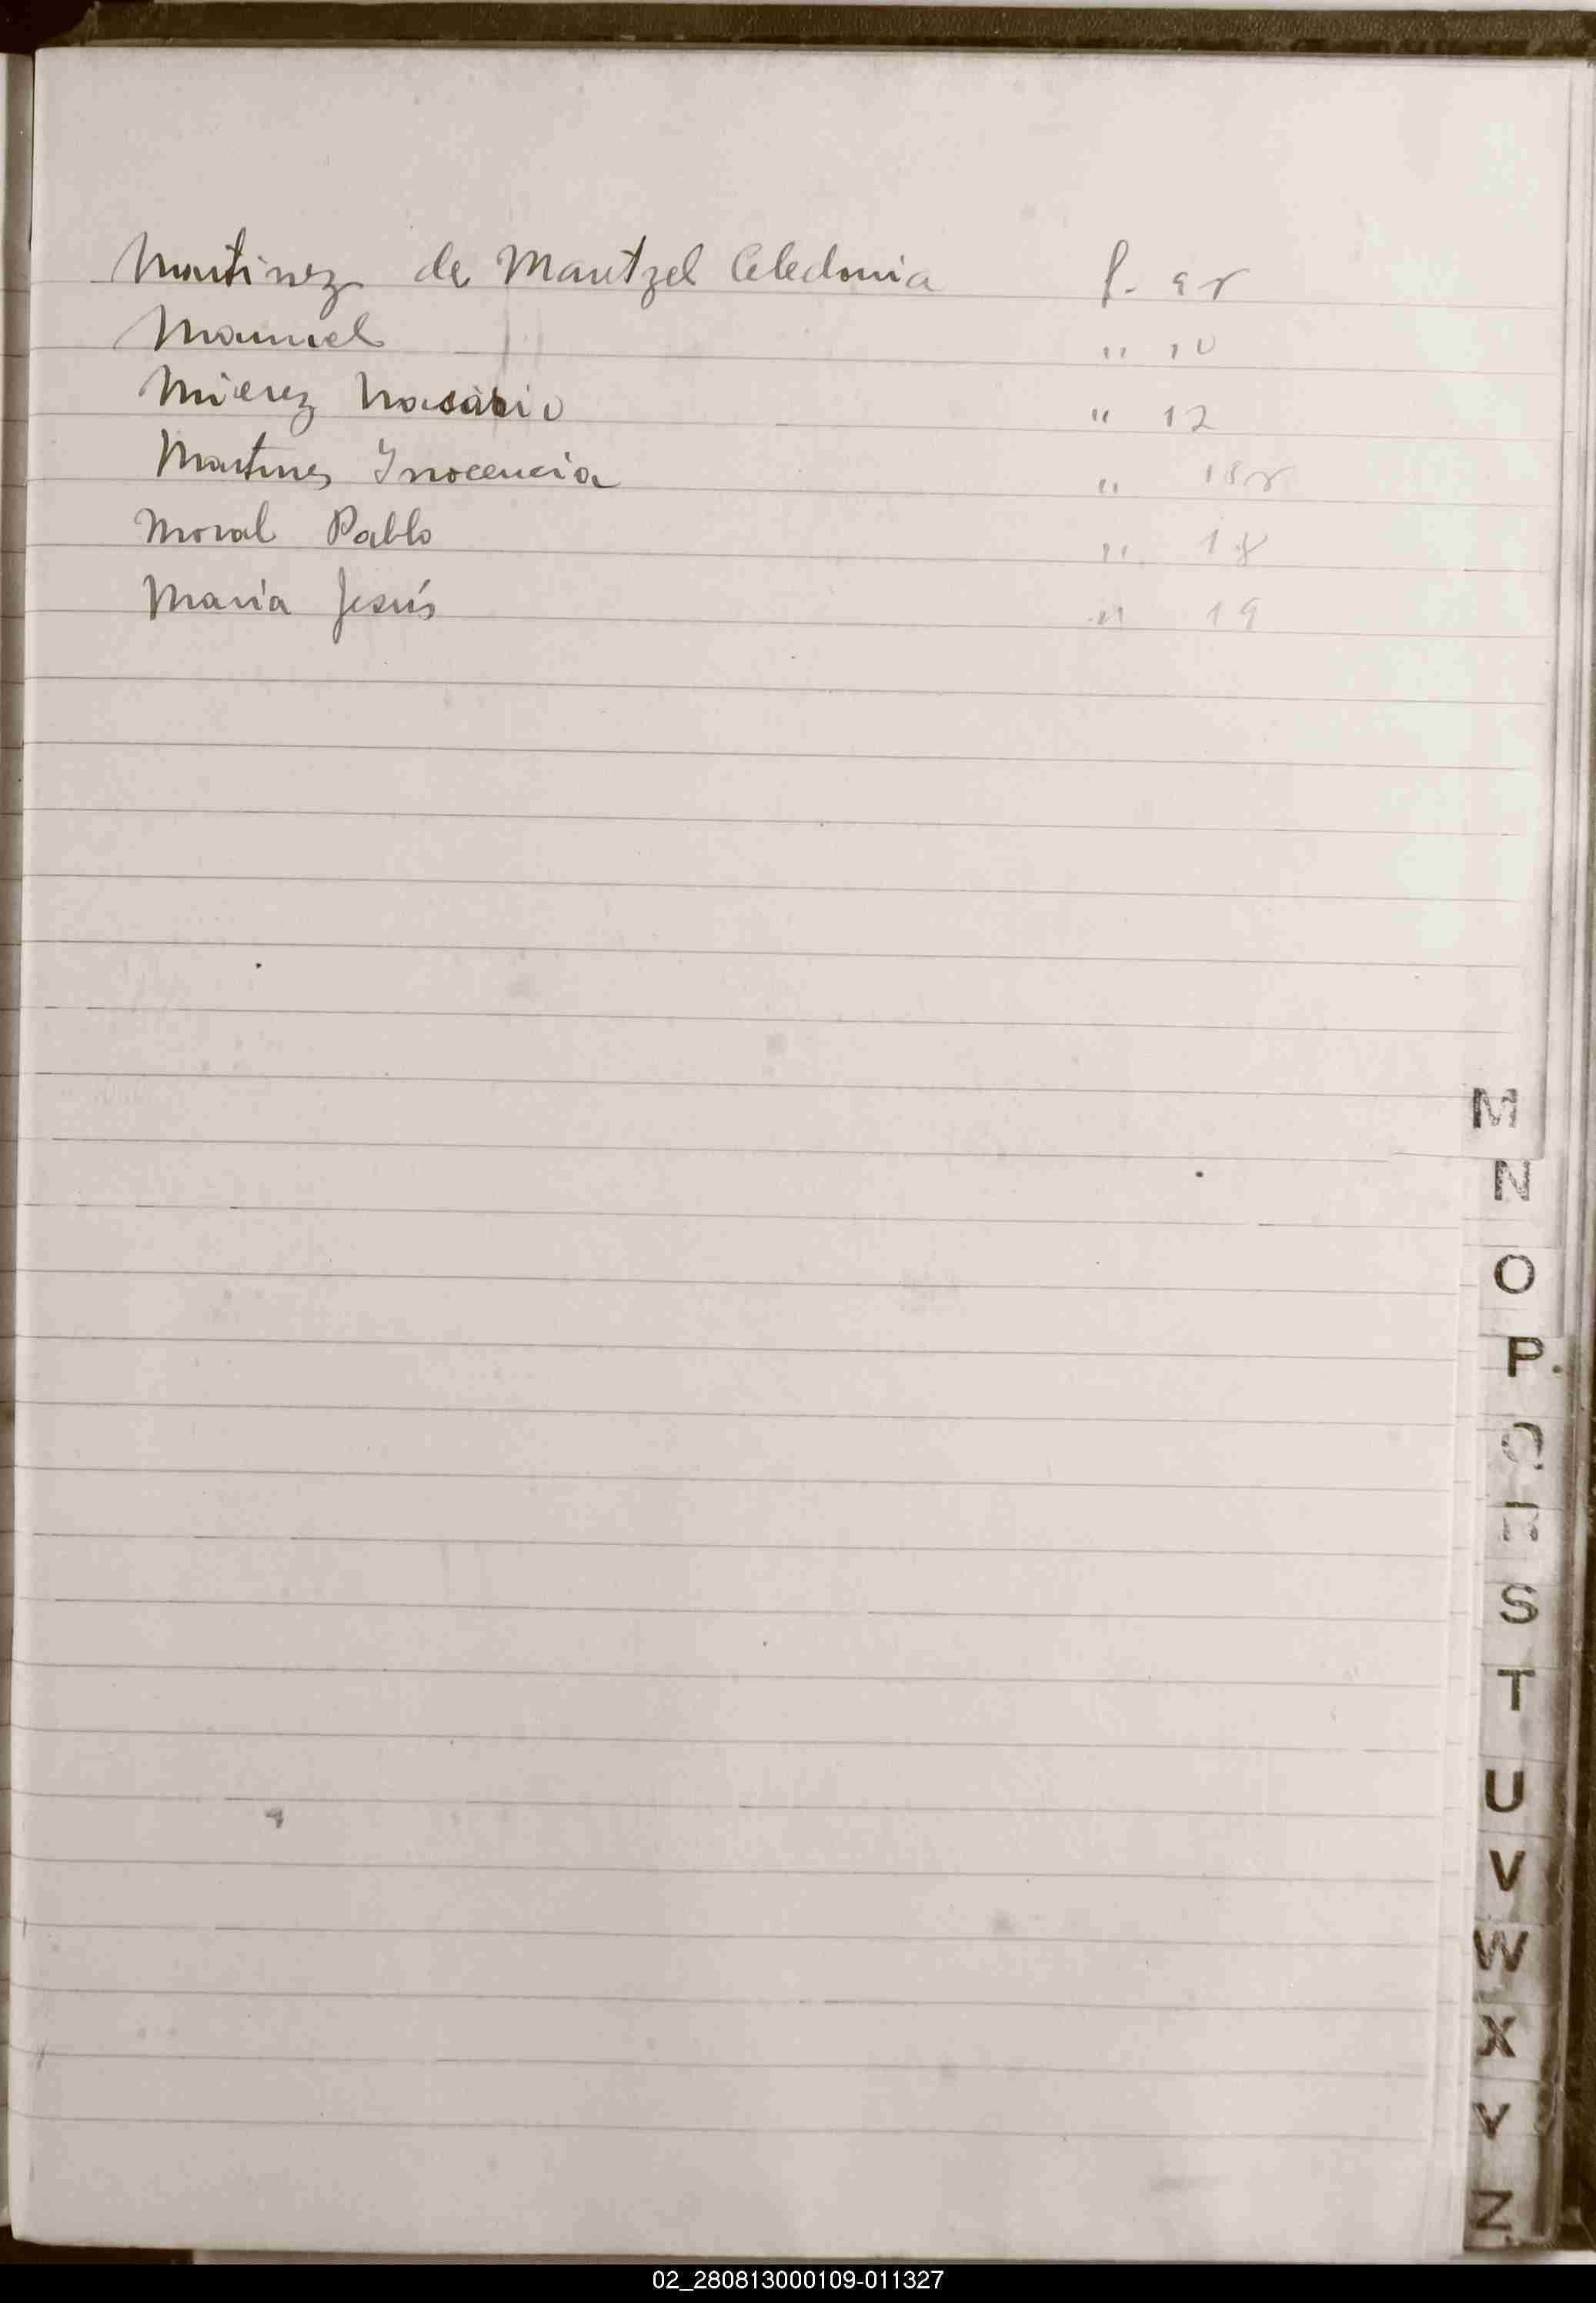 Martinez de Mantzel Celedonia f. 9r
Manuel " 10
Mierez Nasario " 12
Martines Inocencia " 18r
Moral Pablo " 18
Maria Jesús " 19
M
N
O
P
Q
R
S
T
U
V
W
X
Y
Z
02_280813000109-011327